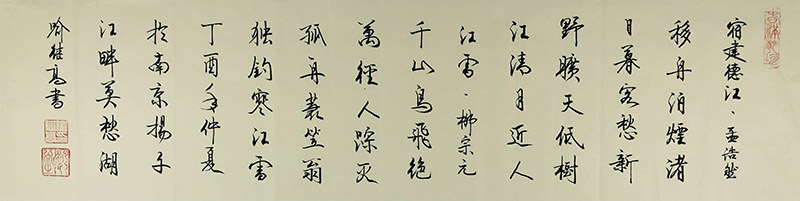 宿建德江、孟浩然
移舟泊煙渚
日暮客愁新
野曠天低樹
江清月近人
江雪·柳宗元
千山鳥飛絕
萬徑人踪灭
孤舟蓑笠翁
独钓寒江雪
丁酉年仲夏
於南京揚子
江畔莫愁湖
桂高書